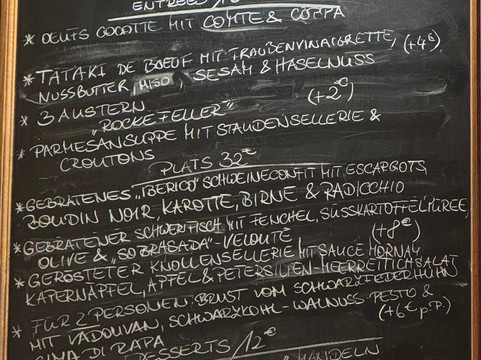 * OEUFS COCOTTE MIT COMTE & COPPA
* TATAKI DE BOEUF MIT TRAUBENVINAIGRETTE, (+4€)
NUSSBUTTER, MISO, SESAM & HASELNUSS
* 3 AUSTERN
"ROCKEFELLER" (+2€)
* PARMESANSUPPE MIT STAUDENSELLERIE &
CROUTONS
PLATS 32€
* GEBRATENES "IBERICO" SCHWEINECONFIT MIT ESCARGOTS,
BOUDIN NOIR, KAROTTE, BIRNE & RADICCHIO
* GEBRATENER SCHWERTFISCH MIT FENCHEL, SÜSSKARTOFFELPÜREE,
OLIVE & "SOBRASADA"-VELOUTE (+8€)
* GERÖSTETER KNOLLENSELLERIE MIT SAUCE MORNAY,
KAPERNÄPFEL, APFEL & PETERSILIEN-MEERRETTICHSALAT
* FÜR 2 PERSONEN: BRUST VOM SCHWARZFEDERHUHN
MIT VADOUVAN, SCHWARZKOHL-WALNUSS-PESTO &
CIMA DI RAPA (+6€ p.P.)
DESSERTS / 12€